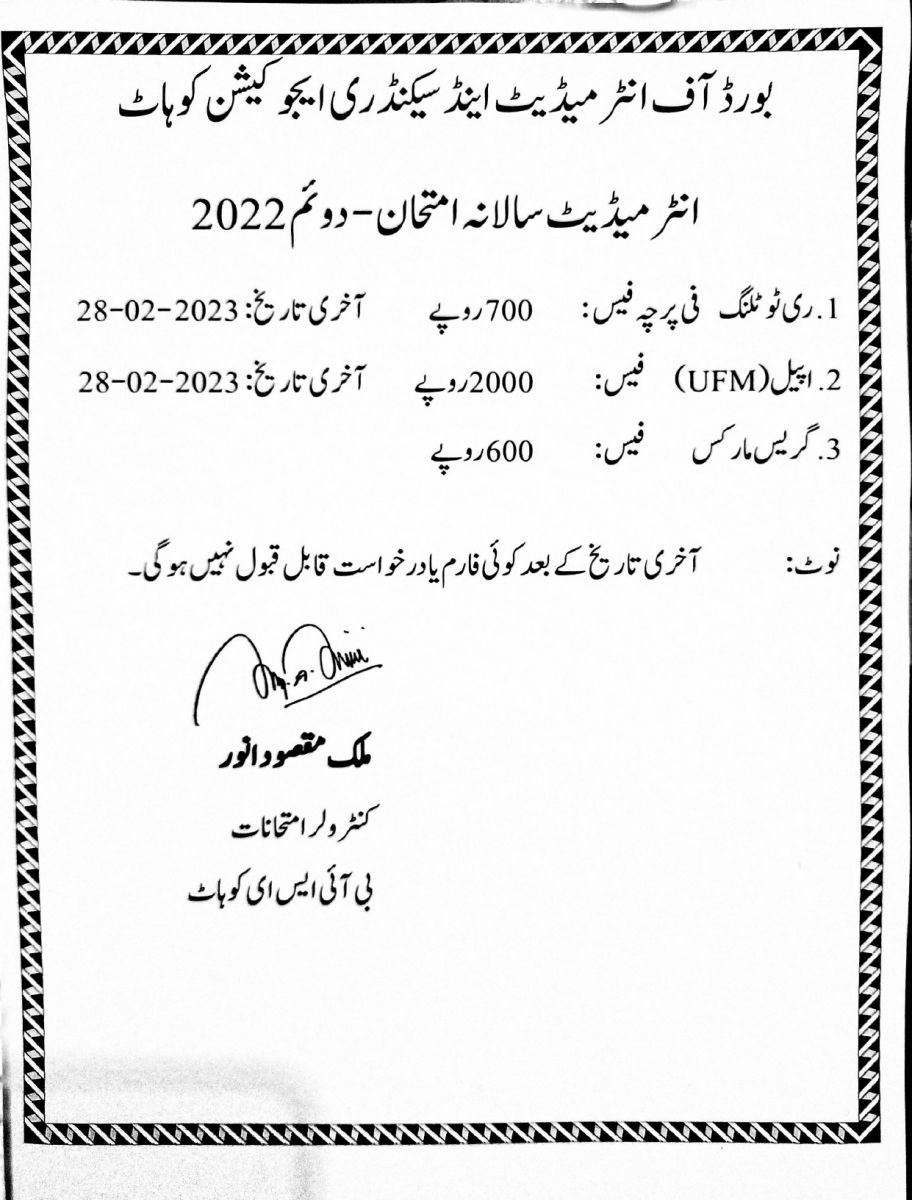 بورڈ آف انٹرمیڈیٹ اینڈ سیکنڈری ایجوکیشن کوہاٹ
انٹرمیڈیٹ سالانہ امتحان-دوئم 2022
1. ری ٹوٹلنگ فی پرچہ فیس: 700روپے آخری تاریخ: 28-02-2023
2. اپیل(UFM) فیس: 2000روپے آخری تاریخ: 28-02-2023
3. گریس مارکس فیس: 600روپے
نوٹ: آخری تاریخ کے بعد کوئی فارم یا درخواست قابل قبول نہیں ہوگی۔
ملک مقصود انور
کنٹرولر امتحانات
بی آئی ایس ای کوہاٹ